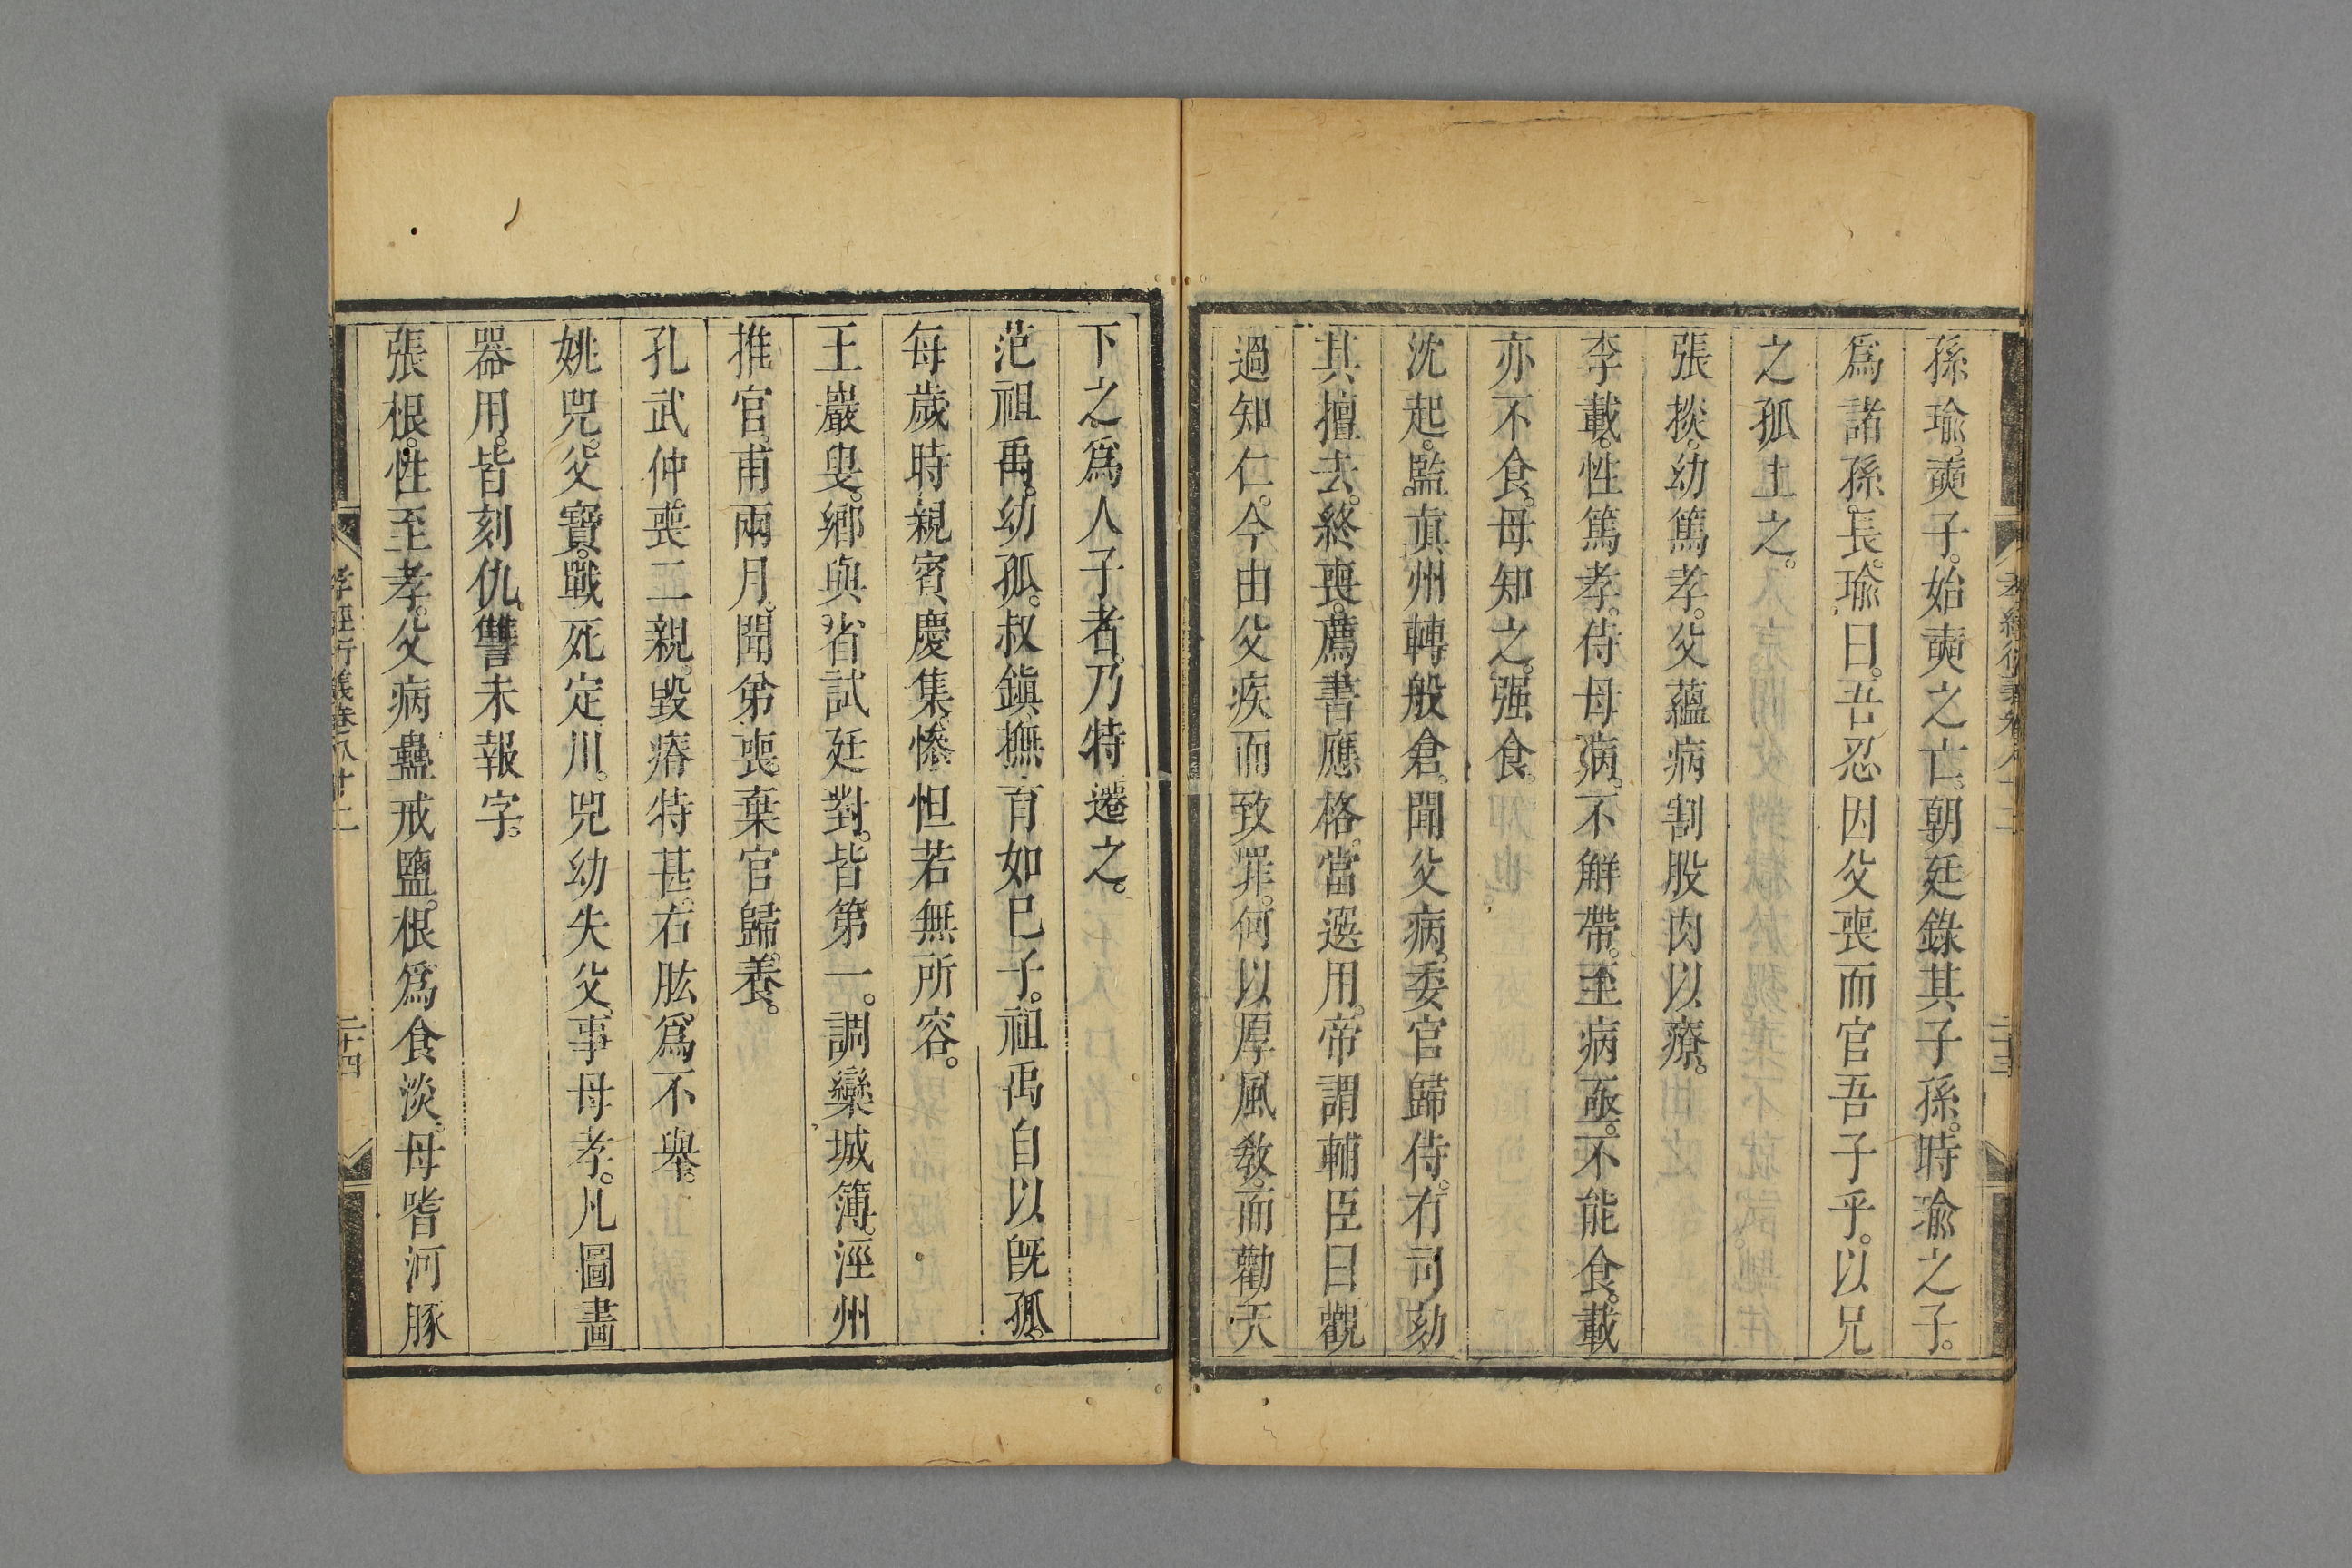 孫瑜。奭子。始奭之亡。朝廷錄其子孫。時瑜之子。
爲諸孫長。瑜曰。吾忍因父喪而官吾子乎。以兄
之孤上之。
張掞。幼篤孝。父蘊病割股肉以療。
李載。性篤孝。侍母病。不解帶。至病亟。不能食。載
亦不食。母知之。强食。
沈起。監眞州轉般倉。聞父病。委官歸侍。有司劾
其擅去。終喪。薦書應格。當選用。帝謂輔臣曰觀
過知仁。今由父疾而致罪。何以厚風敎。而勸天
下之爲人子者。乃特遷之。
范祖禹。幼孤。叔鎭撫育如已子。祖禹自以旣孤。
每歲時親賓慶集。慘怛若無所容。
王巖叟。鄕與省試廷對。皆第一。調欒城簿。涇州
推官。甫兩月。聞弟喪。棄官歸。養。
孔武仲。喪二親。毀瘠特甚。右肱。爲不舉。
姚兕。父寶。戰死定川。兕幼失父。事母孝。凡圖畫
器用。皆刻仇。讐未報字。
張根。性至孝。父病蠱戒鹽。根爲食淡。母嗜河豚
孝經衍義卷八十二
二十四